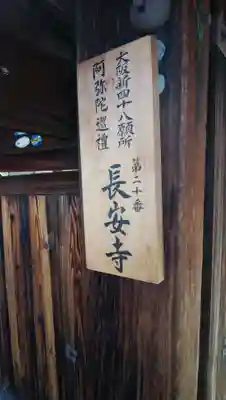 大阪新四十八願所
阿弥陀巡禮
第二十番
長安寺